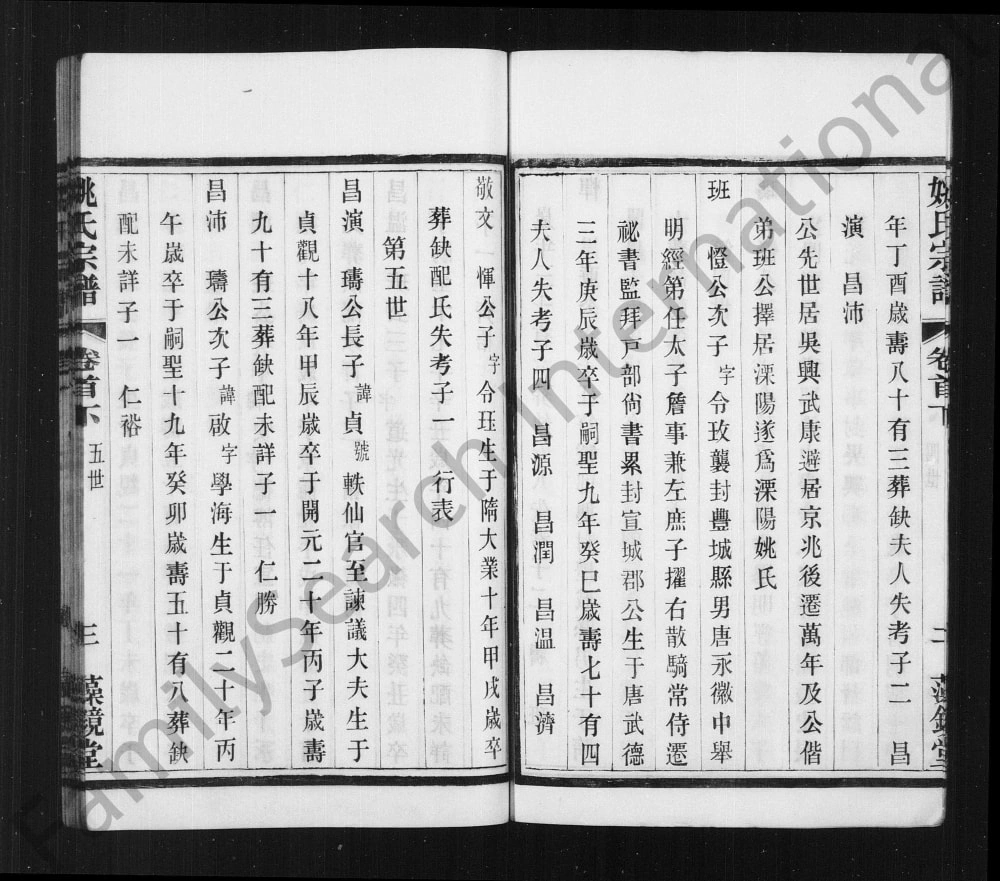 年丁酉歲壽八十有三葬缺夫人失考子二　昌
演　昌沛
公先世居吳興武康避居京兆後遷萬年及公偕
弟班公擇居溧陽遂爲溧陽姚氏
班　憕公次子字令玫襲封豐城縣男唐永徽中舉
明經第任太子詹事兼左庶子擢右散騎常侍遷
祕書監拜戸部尙書累封宣城郡公生于唐武德
三年庚辰歲卒于嗣聖九年癸巳歲壽七十有四
夫人失考子四　昌源　昌潤　昌温　昌濟
敬文　惲公子字令珏生于隋大業十年甲戌歲卒
葬缺配氏失考子一　行表
第五世
昌演　璹公長子諱貞號軼仙官至諫議大夫生于
貞觀十八年甲辰歲卒于開元二十年丙子歲壽
九十有三葬缺配未詳子一　仁勝
昌沛　璹公次子諱啟字學海生于貞觀二十年丙
午歲卒于嗣聖十九年癸卯歲壽五十有八葬缺
配未詳子一　仁裕
姚氏宗譜　卷首下　五世　三　藻鏡堂
FamilySearch International